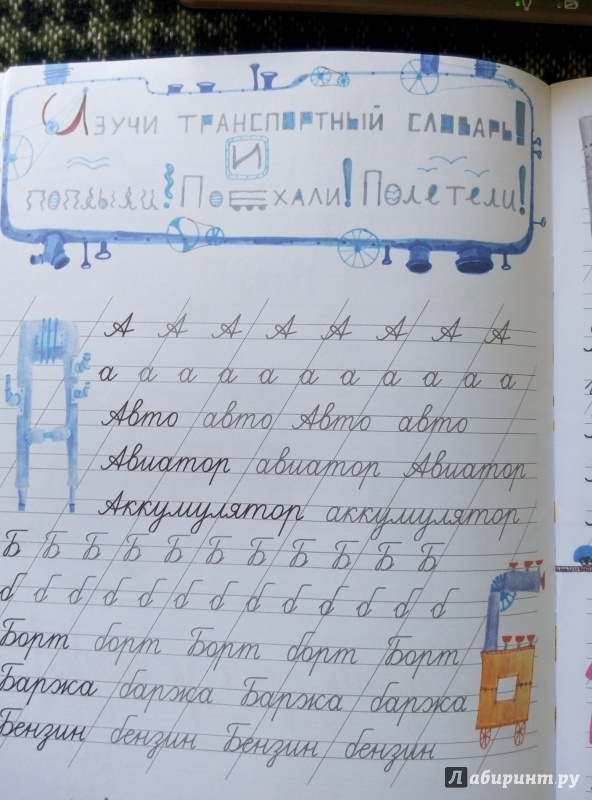 Изучи транспортный словарь!
и
поплыли! Поехали! Полетели!
А А А А А А А А
а а а а а а а а а а а
Авто авто Авто авто
Авиатор авиатор Авиатор
Аккумулятор аккумулятор
Б Б Б Б Б Б Б Б Б Б Б
б б б б б б б б б б б б б
Борт борт Борт борт Борт
Баржа баржа Баржа баржа
Бензин бензин Бензин бензин
Лабиринт.ру